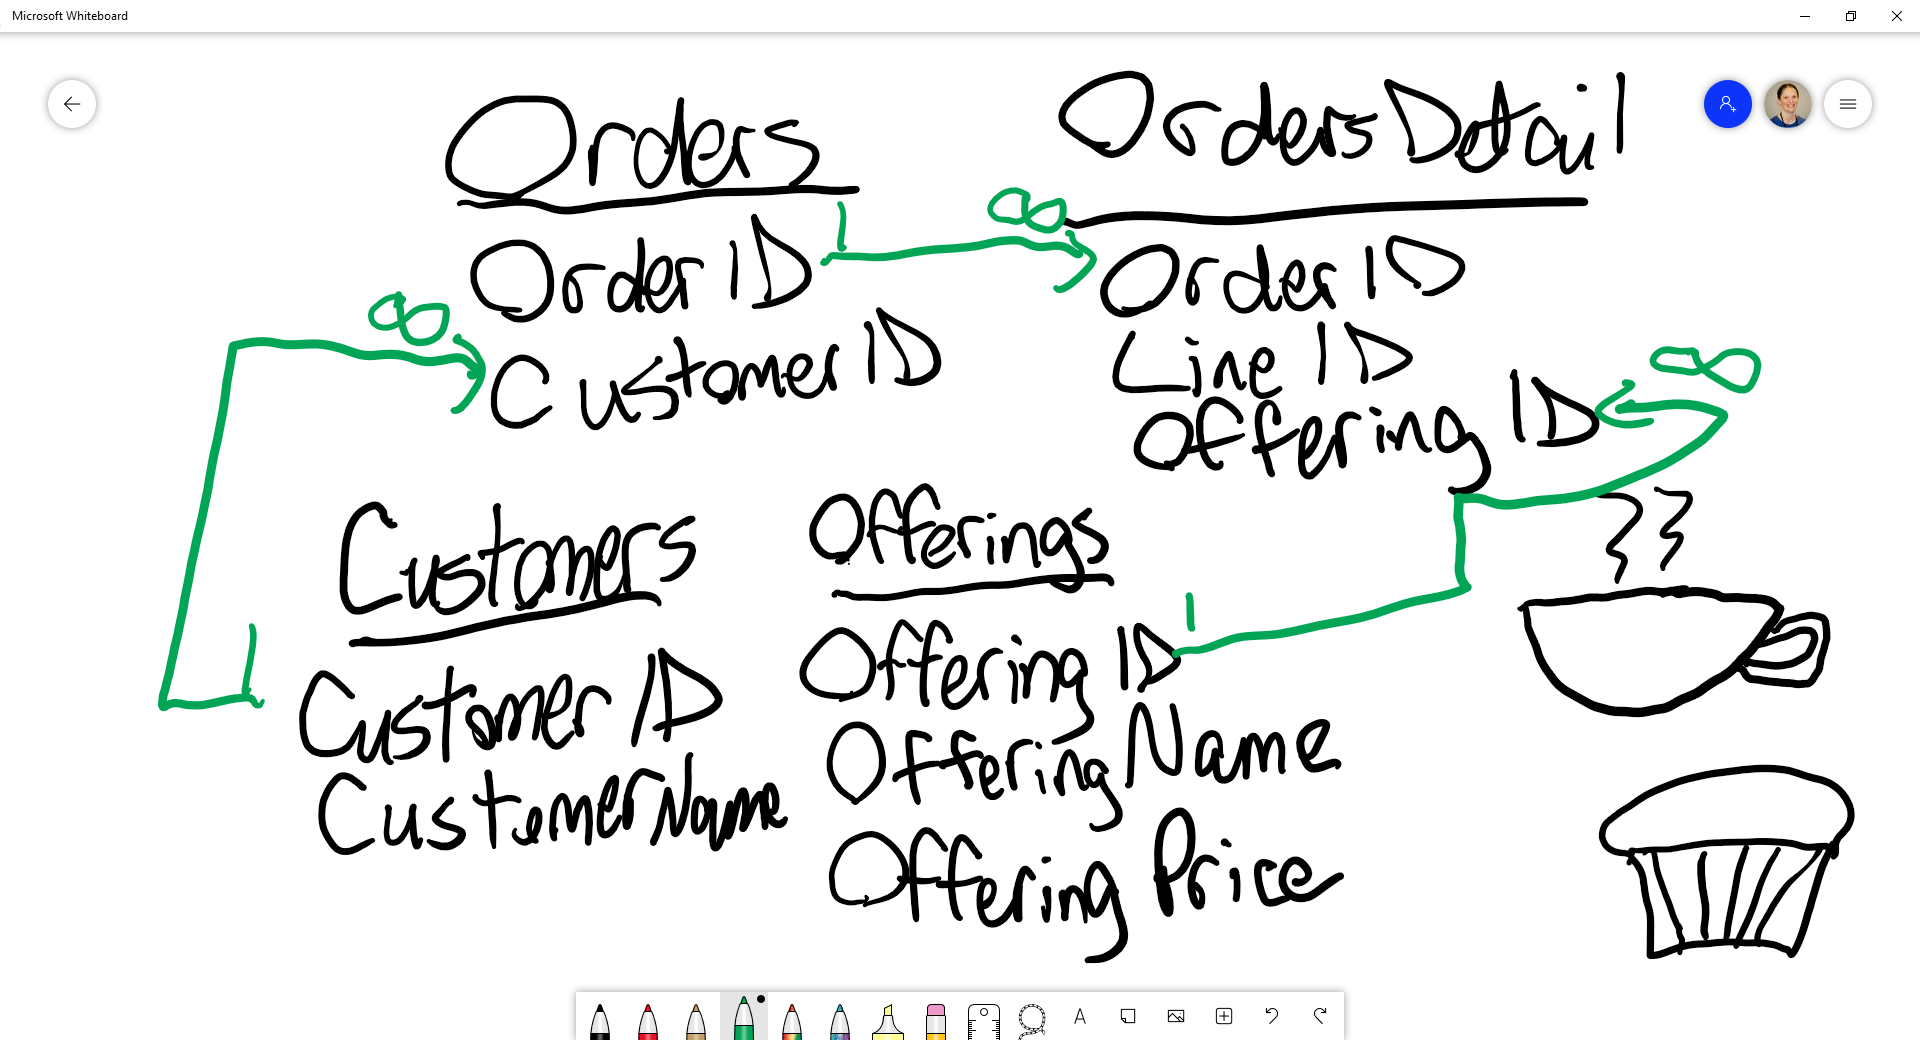 Microsoft Whiteboard
Orders
Order ID
Customer ID
1
∞
OrdersDetail
Order ID
Line ID
Offering ID
∞
∞
Customers
1
Customer ID
CustemerName
Offerings
1
Offering ID
Offering Name
Offering Price
A